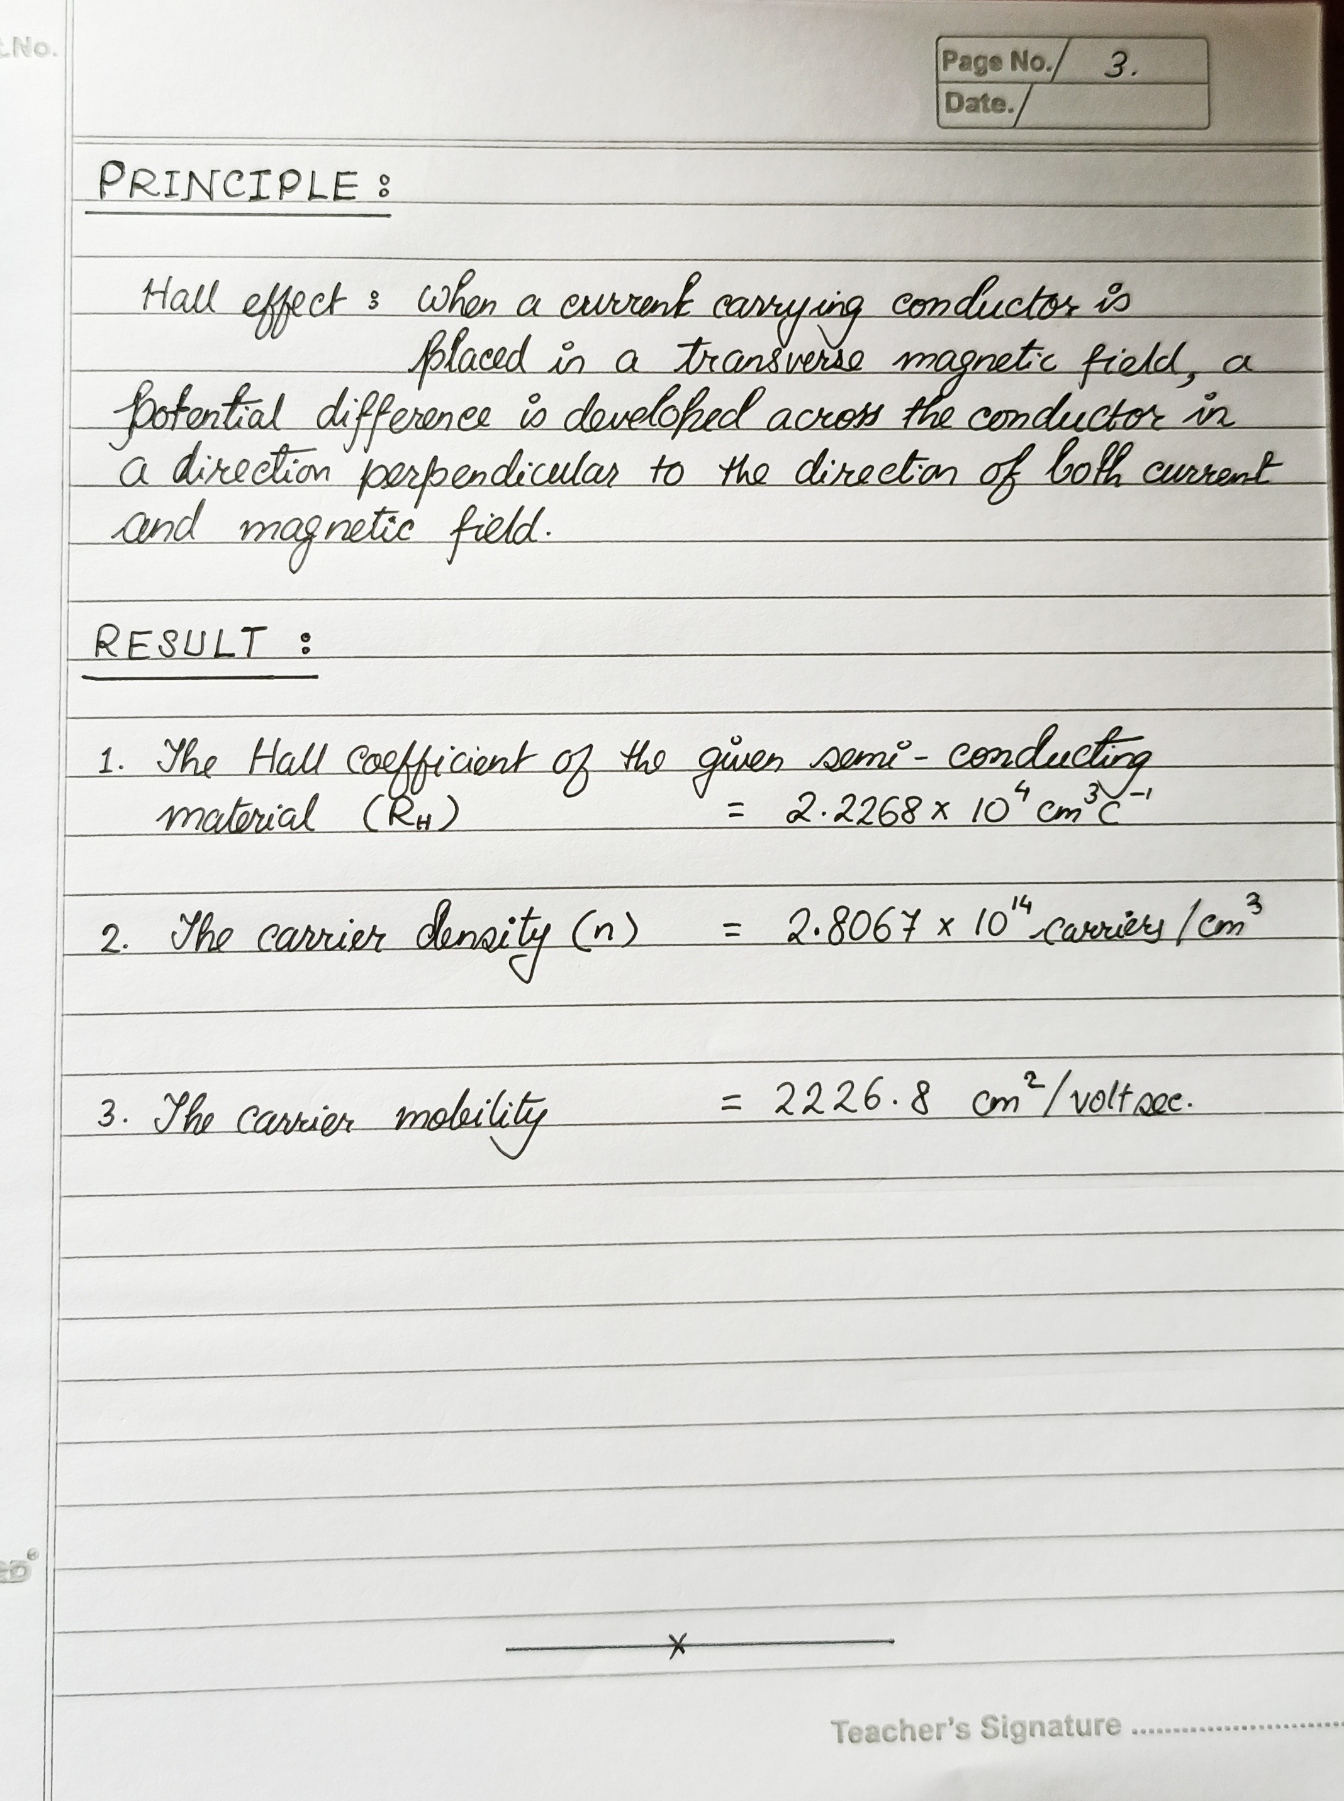 t.No.
Page No./ 3.
Date./
PRINCIPLE :
Hall effect : When a current carrying conductor is
placed in a transverse magnetic field, a
potential difference is developed across the conductor in
a direction perpendicular to the direction of both current
and magnetic field.
RESULT :
1. The Hall Coefficient of the given semi-conducting
material (R_H) = 2.2268 × 10⁴ cm³C⁻¹
2. The carrier density (n) = 2.8067 × 10¹⁴ carriers/cm³
3. The carrier mobility = 2226.8 cm²/volt sec.
Teacher's Signature ........................